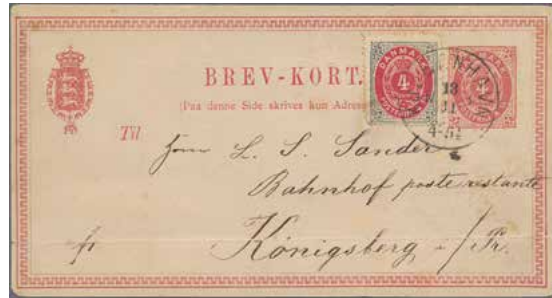 BREV-KORT.
(Paa denne Side skrives kun Adres
DANMARK
4
Til
13
11
4-5
Herrn L. S. Sander
Bahnhof poste restante
Königsberg - i/Pr.